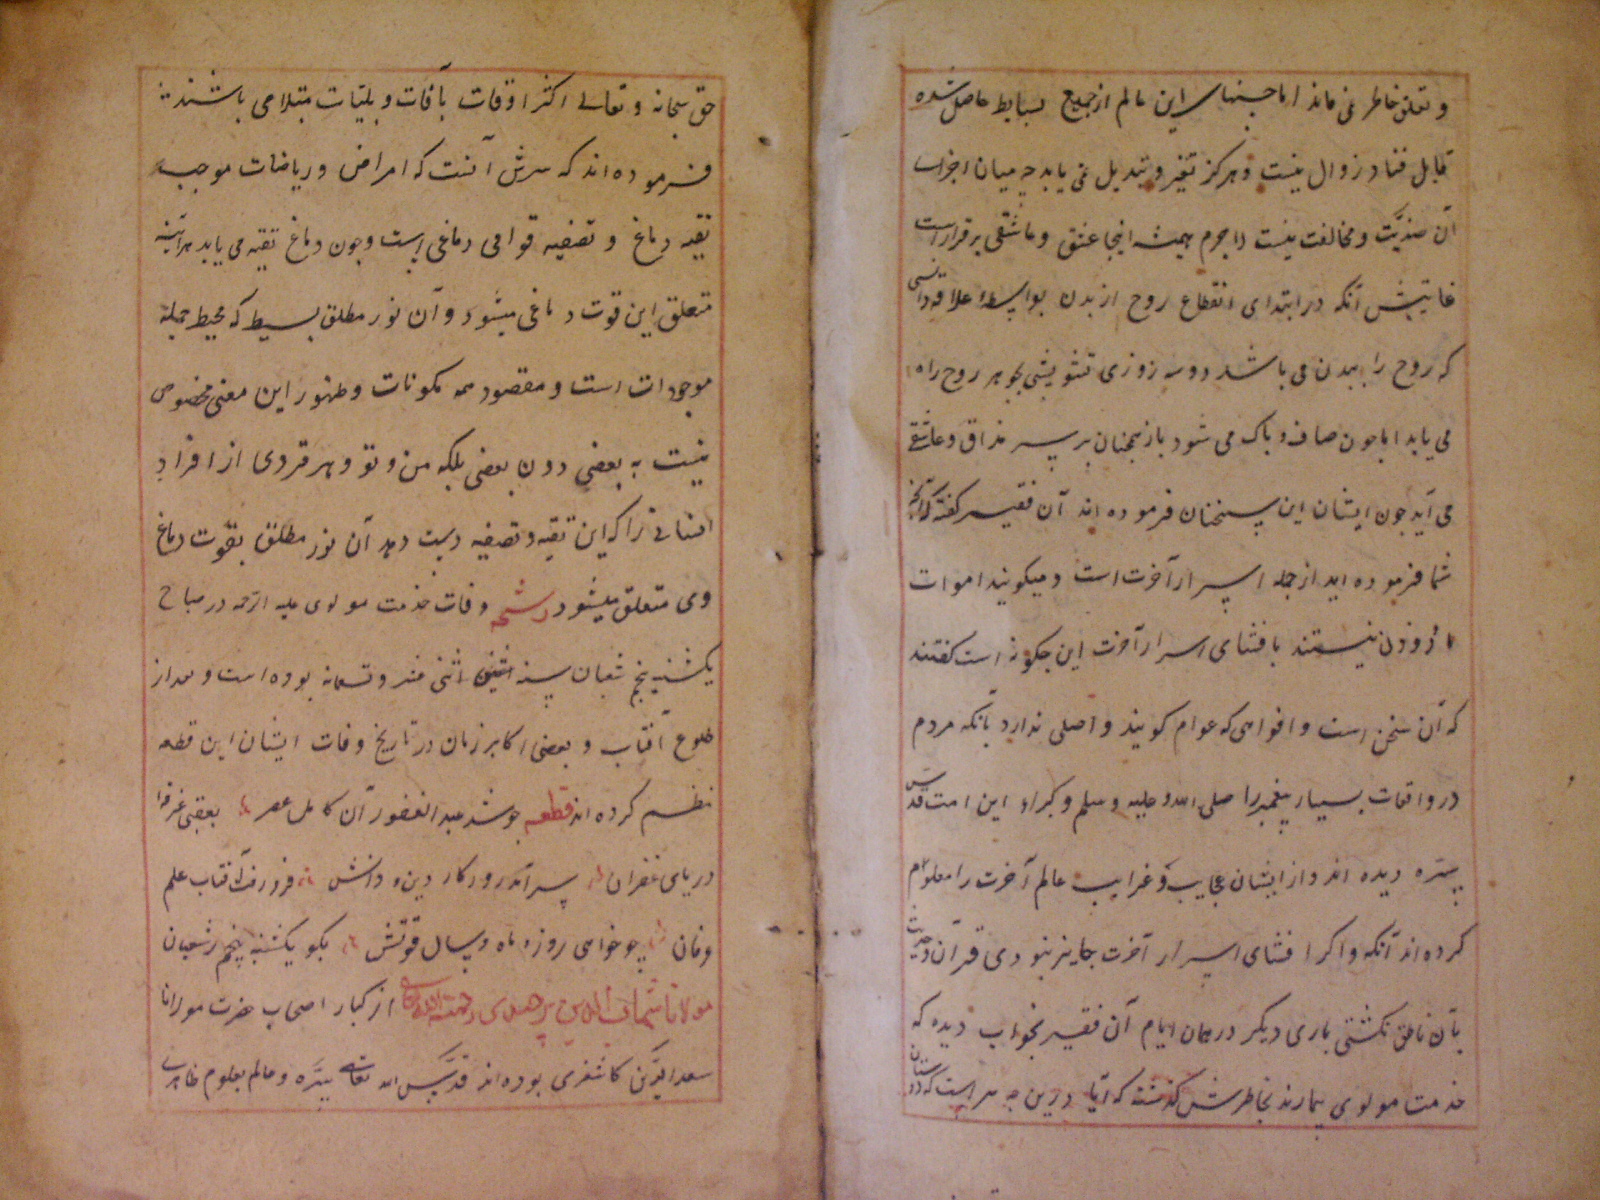 و تعلق خاطر نمی ماند اما چیزهای این عالم از جمیع بسایط حاصل شده
قابل فنا و زوال نیست و هرگز تغیر و تبدیل نمی یابد چه میان اجزای
آن ضدیّت و مخالفت نیست لاجرم همیشه اینجا عشق و عاشقی برقرار است
غایتش آنکه در ابتدای انقطاع روح از بدن بواسطه علاقه و انسی
که روح را ببدن می باشد دو سه روزی تشویشی بجوهر روح راه
می یابد اما چون صاف و پاک می شود باز همچنان بر سر مذاق و عاشقی
می آید چون ایشان این سخنان فرموده اند آن فقیر گفته که آنچه
شما فرموده اید از جمله اسرار آخرت است و میگویند اموات
ماذون نیستند بافشای اسرار آخرت این چگونه است گفتند
که آن سخن است و افواهی که عوام گویند و اصلی ندارد بآنکه مردم
در واقعات بسیار پیغمبر را صلی الله علیه و سلم و کبراء این امت قدس
سره دیده اند و از ایشان عجایب و غرایب عالم آخرت را معلوم
کرده اند آنکه و اگر افشای اسرار آخرت جایز نبودی قرآن و حدیث
بآن ناطق نگشتی باری دیگر در همان ایام آن فقیر بخواب دیده که
خدمت مولوی بیمارند بخاطرش گذشته که آیا درین چه سر است که دوستان
حق سبحانه و تعالی اکثر اوقات بآفات و بلیّات مبتلا می باشند
فرموده اند که سرش آنست که امراض و ریاضات موجب
تقیه دماغ و تصفیه قوای دماغی است و چون دماغ تقیه می یابد هر آینه
متعلق این قوت دماغی میشود و آن نور مطلق بسیط که محیط جمله
موجودات است و مقصود همه مکونات و ظهور این معنی مخصوص
نیست به بعضی دون بعضی بلکه من و تو و هر فردی از افراد
انسانی را که این تقیه و تصفیه دست دهد آن نور مطلق بقوت دماغ
وی متعلق میشود رشحه وفات خدمت مولوی علیه الرحمه در صباح
یکشنبه پنجم شعبان سنه اثنی عشر و تسعمائه بوده است و بعد از
طلوع آفتاب و بعضی اکابر زمان در تاریخ وفات ایشان این قطعه
نظم کرده اند قطعه چو شد عبدالغفور آن کامل عصر بعقبی غرقه
دریای غفران سرآمد روزگار دین و دانش فرو رفت آفتاب علم
و فان چو خواهی روز و ماه و سال فوتش بگو یکشنبه پنجم ز شعبان
مولانا شهاب الدین برجندی رحمة الله تعالی از کبار اصحاب حضرت مولانا
سعد الدّین کاشغری بوده اند قدّس الله تعالی سرّه و عالم بعلوم ظاهری